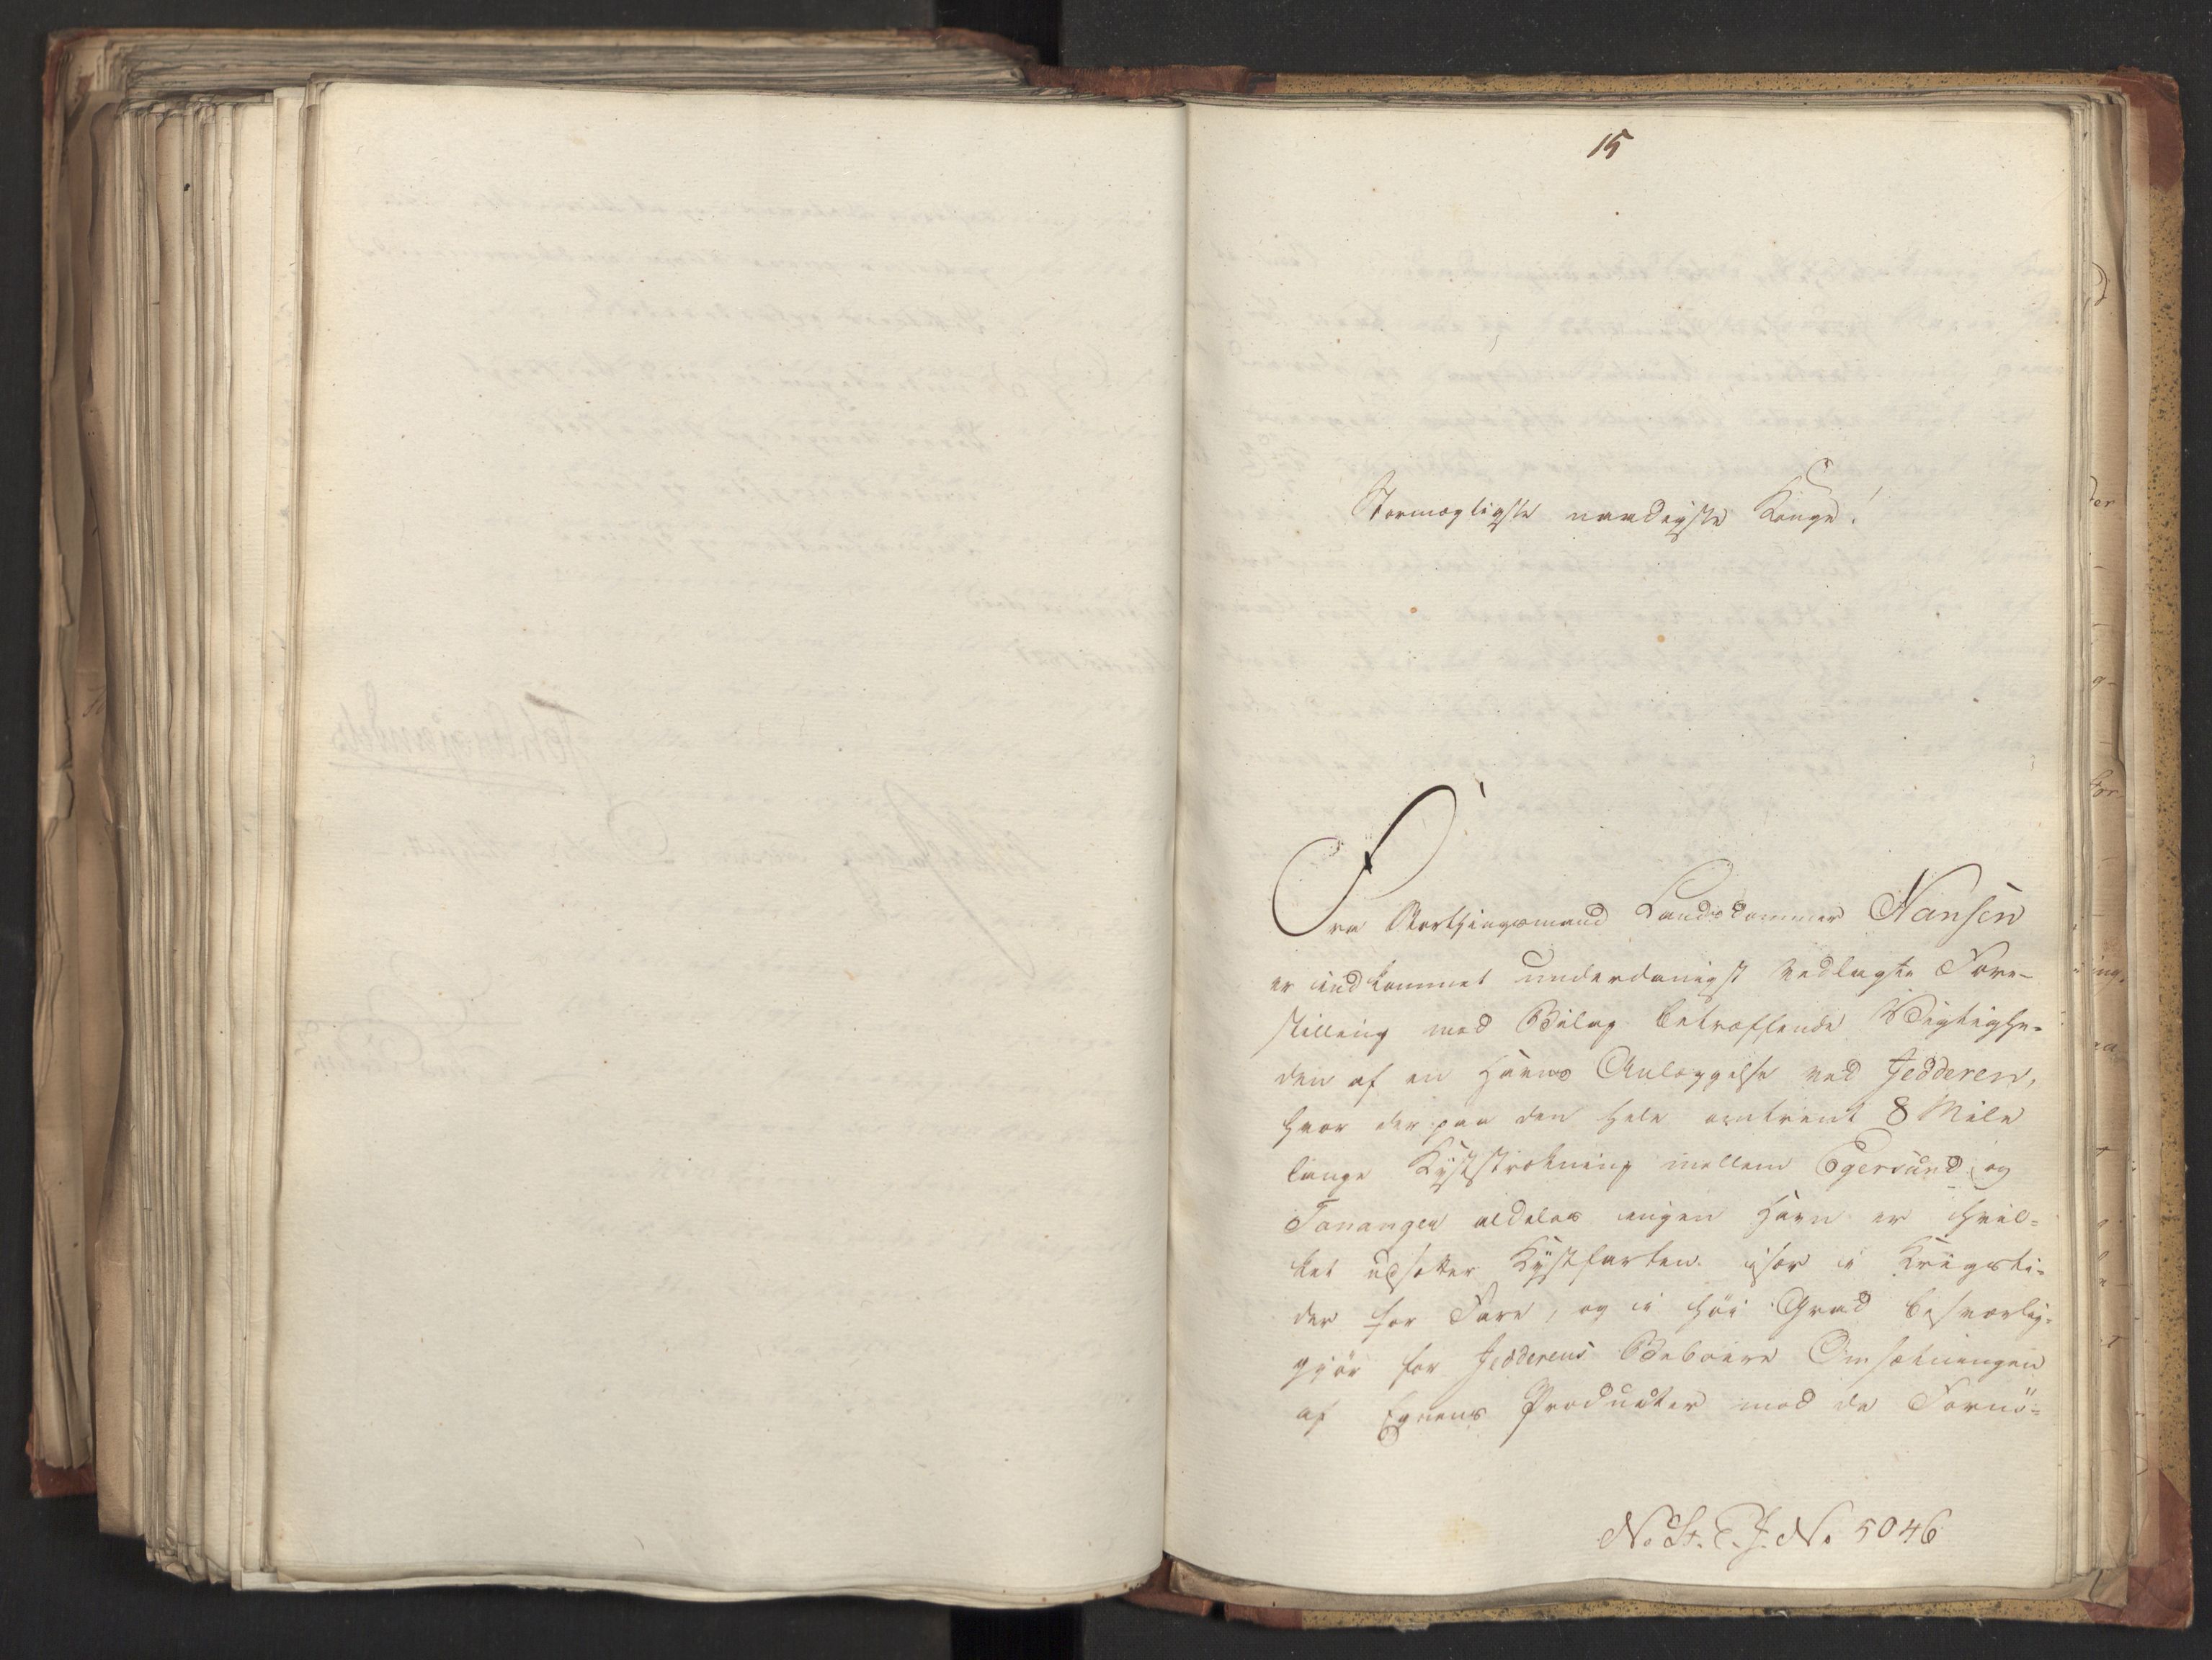 15
Stormægtigste naadigste Konge!
Fra Storthingsmand Landsdommer Hansen
er indkommet underdanigst vedlagte Fore-
stilling med Bilag betræffende Vigtighe-
den af en Havns Anlæggelse ved Jedderen,
hvor der paa den hele omtrent 8 Mile
lange Kyststrækning mellem Egersund og
Tananger aldeles ingen Havn er hvil-
ket udsætter Kystfarten især i Krigsti-
der for Fare, og i höi Grad besværlig-
gjör for Jedderens Beboere Omsætningen
af Egnens Producter mod de Fornö-
No. St. C. J. No 5046